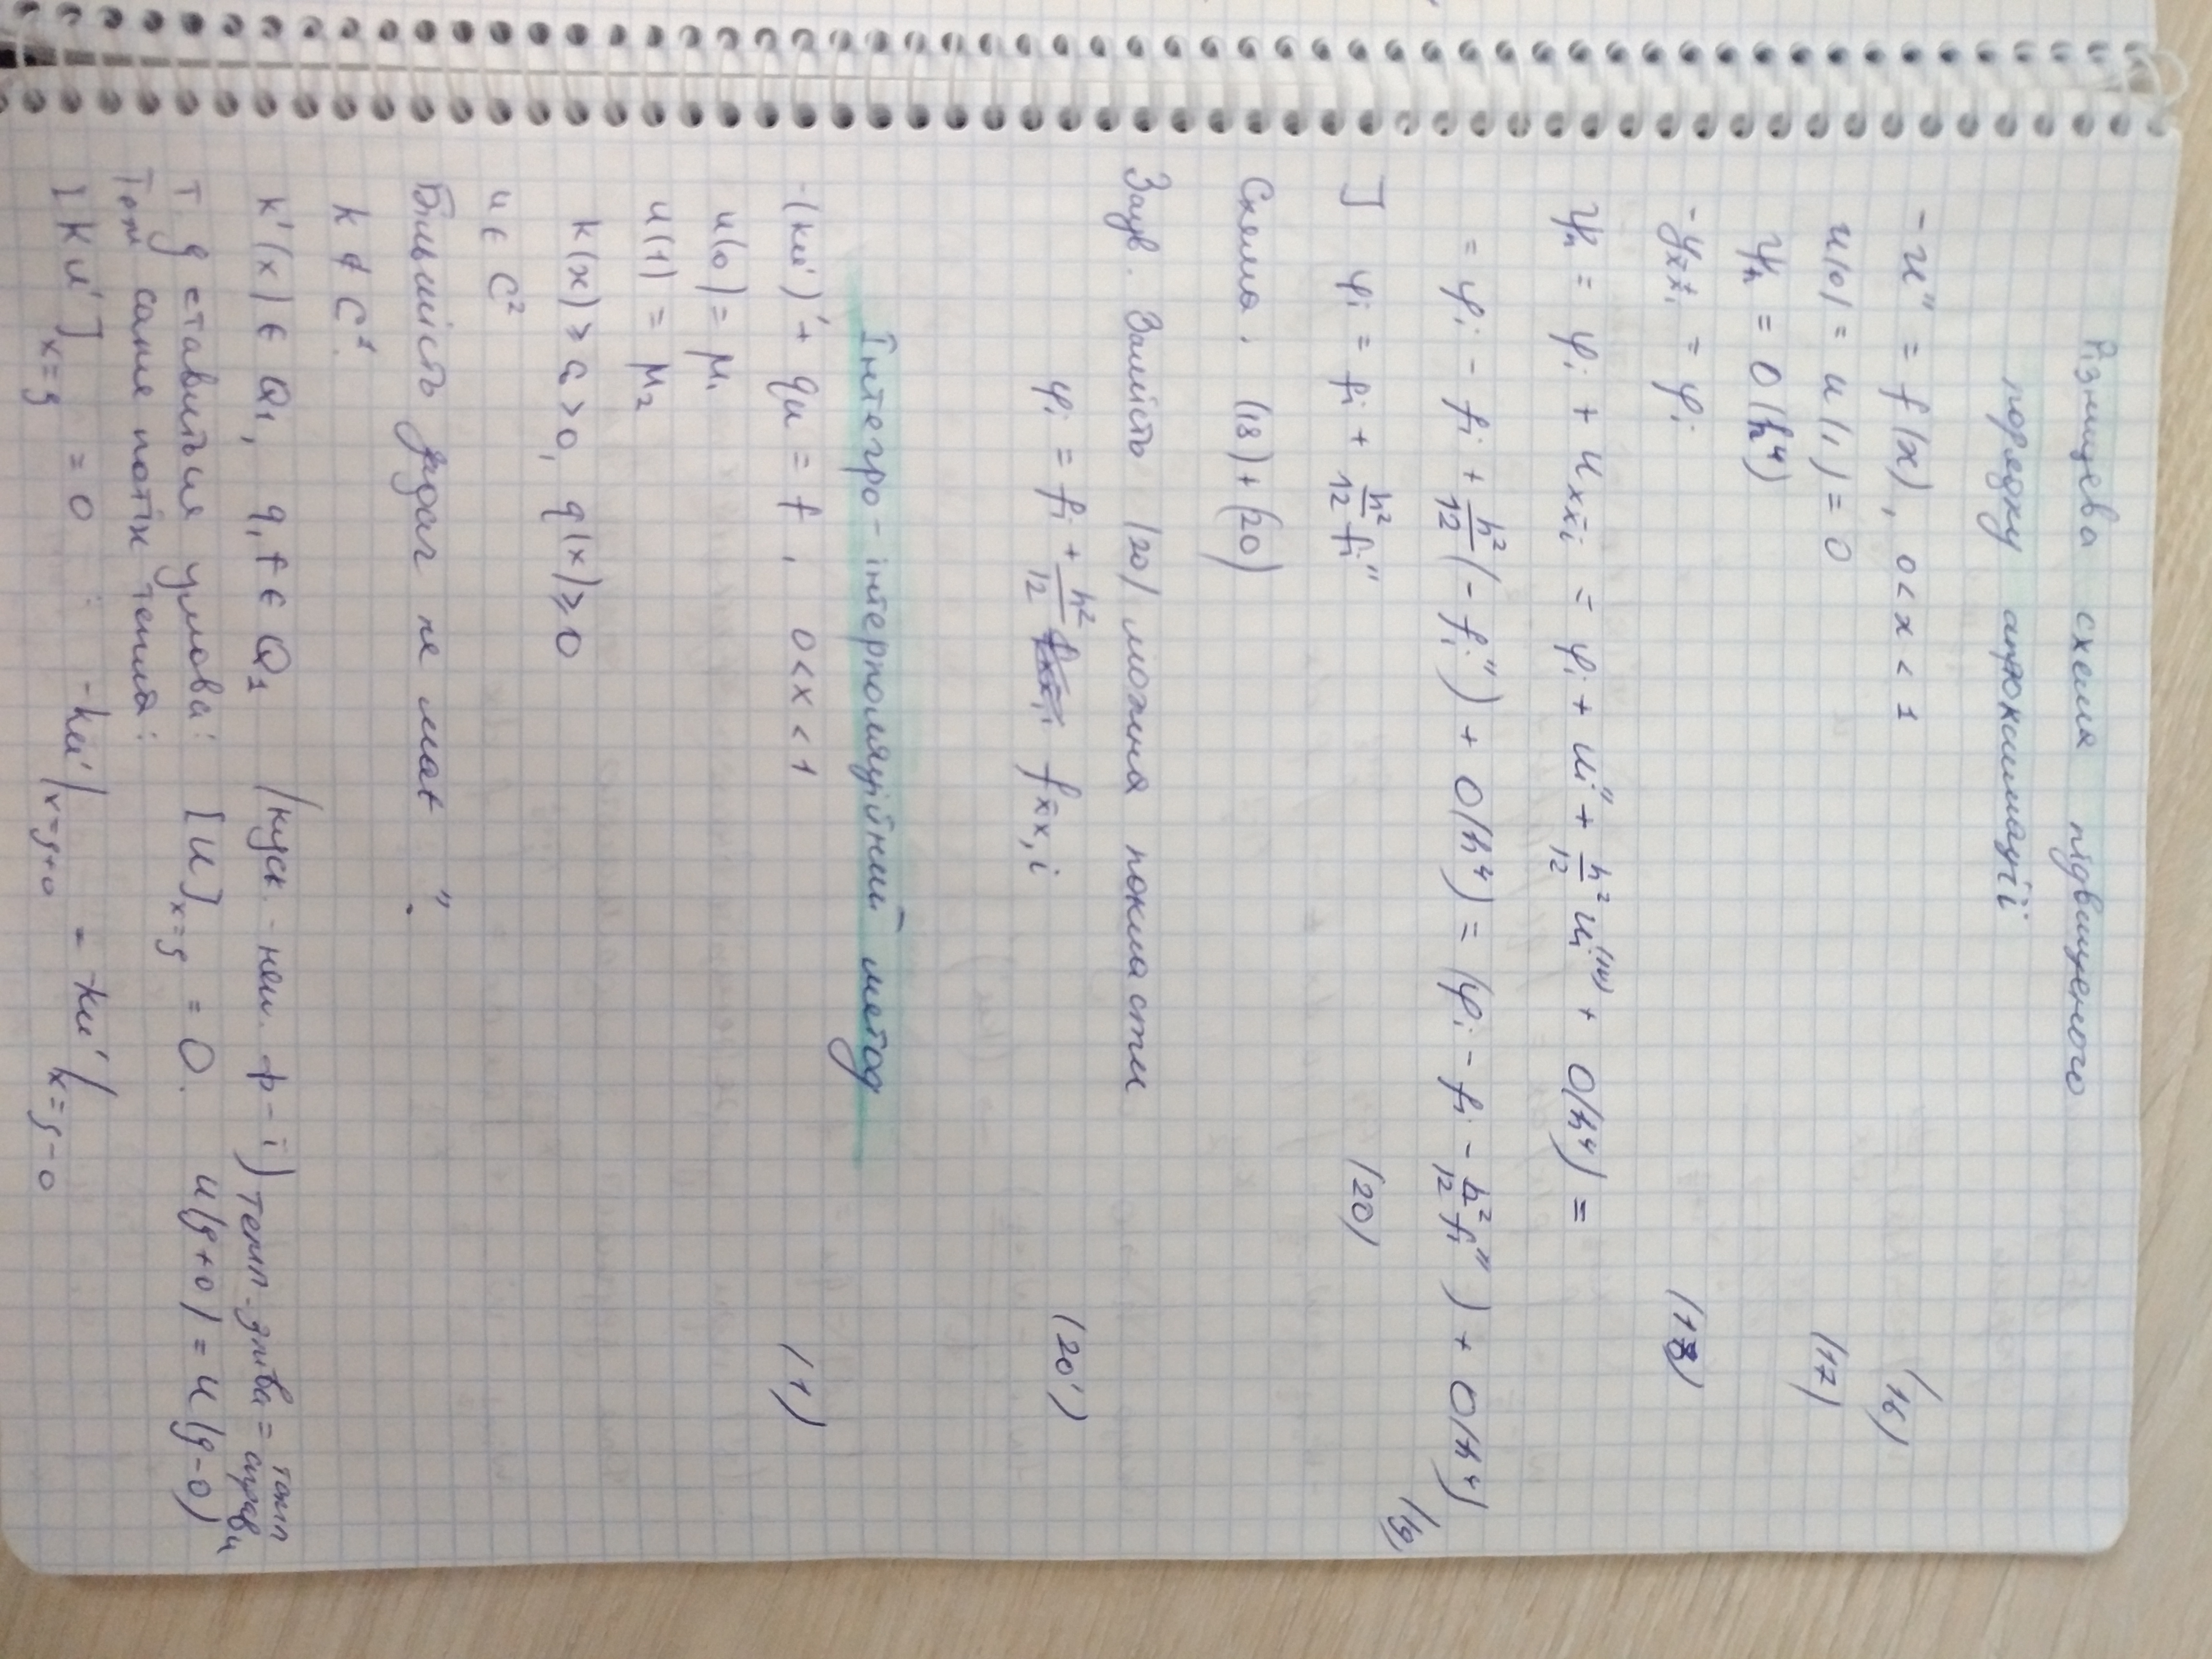 Різницева схема підвищеного
порядку апроксимації
-u'' = f(x), 0 < x < 1 (16)
u(0) = u(1) = 0 (17)
ψₕ = O(h⁴)
-y_{x̄x,i} = φᵢ (18)
ψₕ = φᵢ + u_{xx̄,i} = φᵢ + uᵢ'' + h²/12 uᵢ⁽ⁱᵛ⁾ + O(h⁴) =
= φᵢ - fᵢ + h²/12 (-fᵢ'') + O(h⁴) = (φᵢ - fᵢ - h²/12 fᵢ'') + O(h⁴) (19)
] φᵢ = fᵢ + h²/12 fᵢ'' (20)
Схема: (18)+(20)
Заув. Замість (20) можна покласти
φᵢ = fᵢ + h²/12 f_{x̄x,i} (20')
Інтегро-інтерполяційний метод
-(ku')' + qu = f, 0 < x < 1 (1)
u(0) = μ₁
u(1) = μ₂
k(x) ≥ c₁ > 0, q(x) ≥ 0
u ∈ C²
Більшість задач не мають
k ∉ C¹.
k'(x) ∈ Q₁, q, f ∈ Q₁ (куск.-неп. ф-ї) темп. зліва = темп справа
т. ξ ставиться умова: [u]_{x=ξ} = 0. u(ξ+0) = u(ξ-0)
Той саме потік тепла:
[ku']_{x=ξ} = 0 : -ku'|_{x=ξ+0} = -ku'|_{x=ξ-0}